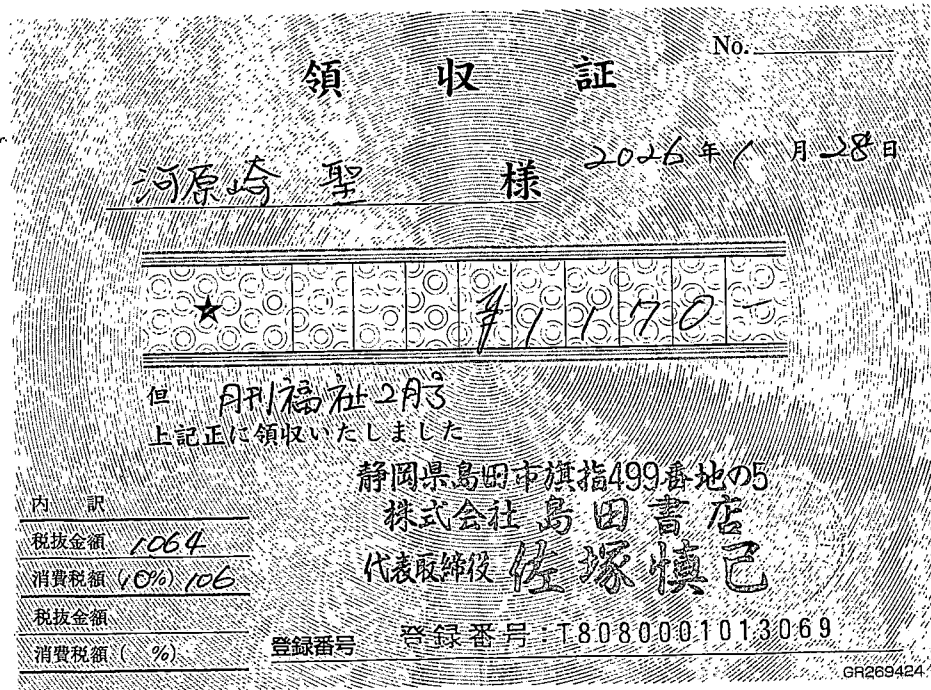 No.
領収証
2026年1月28日
河原崎 聖 様
★ ¥1170-
但 月刊福祉2月号
上記正に領収いたしました
静岡県島田市旗指499番地の5
株式会社 島田書店
代表取締役 佐塚慎己
内訳
税抜金額 1064
消費税額(10%) 106
税抜金額
消費税額( %)
登録番号 登録番号:T8080001013069
GR269424